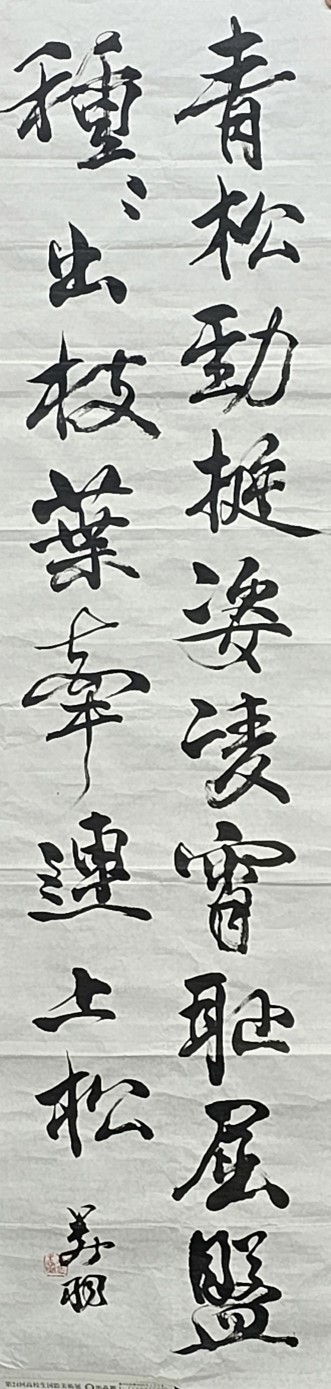 青松勁挺姿凌霄耻屈盤
種〻出枝葉牽連上松
美羽